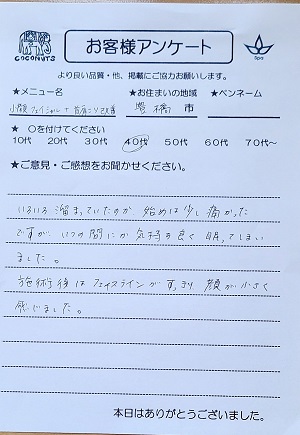 COCONUTS
お客様アンケート
Spa
より良い品質・他、掲載にご協力お願いします。
★メニュー名 ★お住まいの地域 ★ペンネーム
小顔フェイシャル + 首肩こり改善 豊橋 市
★ ○を付けてください
10代 20代 30代 40代 50代 60代 70代～
★ご意見・ご感想をお聞かせください。
いろいろ溜まっていたのが 始めは少し痛かった
ですが、いつの間にか気持ち良く眠ってしまい
ました。
施術後はフェイスラインがすっきり 顔が小さく
感じました。
本日はありがとうございました。